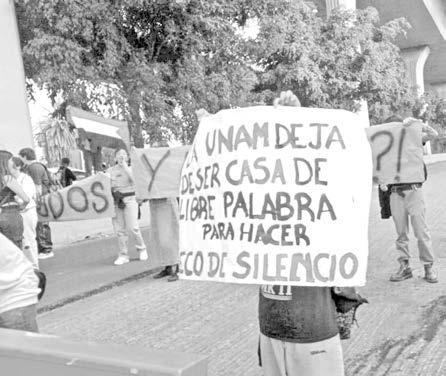 LA UNAM DEJA
DE SER CASA DE
LIBRE PALABRA
PARA HACER
ECO DE SILENCIO
Y
?!